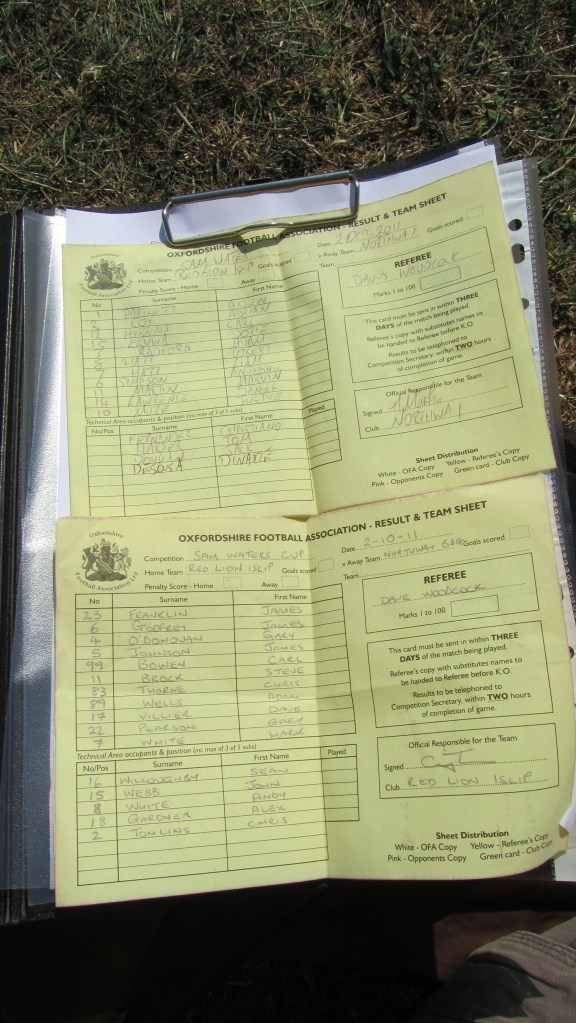 OXFORDSHIRE FOOTBALL ASSOCIATION - RESULT & TEAM SHEET
Oxfordshire
Football Association Ltd
Competition SAM WATERS
Date 2 Oct 2011
Home Team RED LION ISLIP Goals scored
v Away Team NORTHWAY Goals scored
Penalty Score - Home Away Team
No Surname First Name
1 AIDEN
ADRIAN
CARL
15
7 RADFORD ADAM
8 ROBERT
9 HATT
6 SIMPSON ANTHONY
MARTIN MARVIN
14 LAWRENCE
10 JUSTIN
REFEREE
DAVID WOODCOCK
Marks 1 to 100
This card must be sent in within THREE
DAYS of the match being played.
Referee's copy with substitutes names to
be handed to Referee before K.O.
Results to be telephoned to
Competition Secretary, within TWO hours
of completion of game.
Technical Area occupants & position (no max of 3 of 5 subs)
No/Pos Surname First Name Played
FERNANDEZ CHRISTIANO
TOM
DESOUSA
Official Responsible for the Team
Signed
Club NORTHWAY
Sheet Distribution
White - OFA Copy Yellow - Referee's Copy
Pink - Opponents Copy Green card - Club Copy
OXFORDSHIRE FOOTBALL ASSOCIATION - RESULT & TEAM SHEET
Oxfordshire
Football Association Ltd
Competition SAM WATERS CUP
Date 2-10-11
Home Team RED LION ISLIP Goals scored
v Away Team NORTHWAY Goals scored
Penalty Score - Home Away Team
No Surname First Name
23 FRANKLIN JAMES
6 GODFREY JAMES
4 O'DONOVAN GARY
5 JOHNSON JAMES
99 BOWEN CARL
11 BROCK STEVE
83 THORNE CHRIS
89 WELLS ADAM
17 VILLIER DAVE
22 PEARSON GARY
7 WHITE MARK
REFEREE
DAVE WOODCOCK
Marks 1 to 100
This card must be sent in within THREE
DAYS of the match being played.
Referee's copy with substitutes names to
be handed to Referee before K.O.
Results to be telephoned to
Competition Secretary, within TWO hours
of completion of game.
Technical Area occupants & position (no max of 3 of 5 subs)
No/Pos Surname First Name Played
16 WILLOUGHBY SEAN
15 WEBB JOHN
8 WHITE ANDY
18 GARDNER ALEX
2 TOMLINS CHRIS
Official Responsible for the Team
Signed
Club RED LION ISLIP
Sheet Distribution
White - OFA Copy Yellow - Referee's Copy
Pink - Opponents Copy Green card - Club Copy